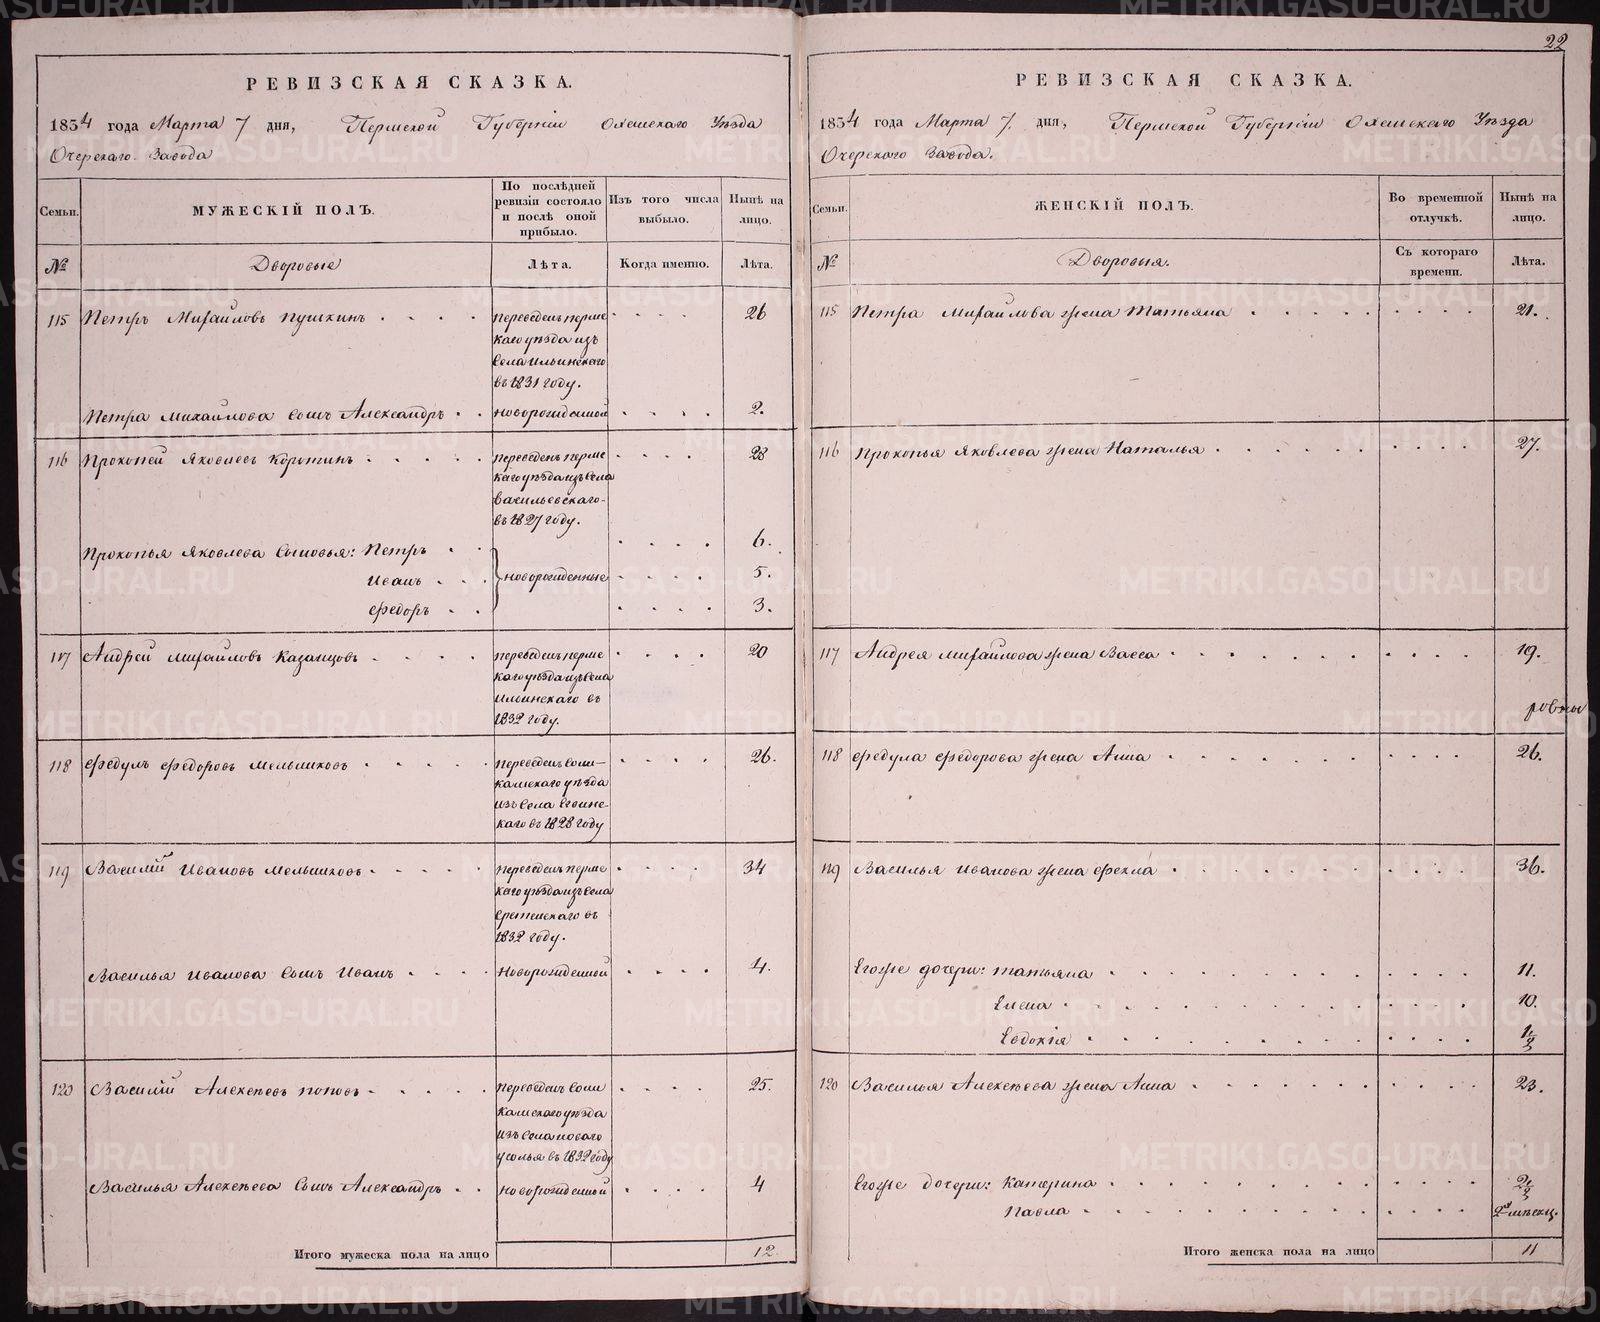 22
РЕВИЗСКАЯ СКАЗКА.
1834 года Марта 7 дня, Пермской Губерніи Оханскаго Уѣзда
Очерскаго Завода
Семьи.
МУЖЕСКІЙ ПОЛЪ.
По послѣдней ревизіи состояло и послѣ оной прибыло.
Изъ того числа выбыло.
Нынѣ на лицо.
№
Дворовые
Лѣта.
Когда именно.
Лѣта.
115 Петръ Михайловъ Пушкинъ . . . . переведенъ перм- . . . . 26
скаго уѣзда изъ
села ильинскаго
въ 1831 году.
Петра Михайлова Сынъ Александръ . . новорожденной . . . . 2.
116 Прокопей Яковлевъ Коротинъ . . . . . переведенъ перм- . . . . 28
скаго уѣзда изъ села
васильевскаго
въ 1827 году.
Прокопья Яковлева Сыновья: Петръ . . . . . . 6.
Иванъ . . . новорожденные . . . . 5.
Федоръ . . . . . . 3.
117 Андрей Михайловъ Казанцовъ . . . . переведенъ перм- . . . . 20
скаго уѣзда изъ села
Ильинскаго въ
1832 году.
118 Федулъ Федоровъ Мельниковъ . . . . . переведенъ соли- . . . . 26.
камскаго уѣзда
изъ села
въ 1828 году
119 Василій Ивановъ Мельниковъ . . . . . переведенъ перм- . . . . 34
скаго уѣзда изъ села
сретенскаго въ
1832 году.
Василья Иванова Сынъ Иванъ . . . . новорожденной . . . . 4.
120 Василій Алексѣевъ Поповъ . . . . . переведенъ соли . . . . 25.
камскаго уѣзда
изъ села новаго
усолья въ 1832 году
Василья Алексѣева Сынъ Александръ . . новорожденной . . . . 4
Итого мужеска пола на лицо 12.
РЕВИЗСКАЯ СКАЗКА.
1834 года Марта 7. дня, Пермской Губерніи Оханскаго Уѣзда
Очерскаго Завода.
Семьи.
ЖЕНСКІЙ ПОЛЪ.
Во временной отлучкѣ.
Нынѣ на лицо.
№
Дворовыя.
Съ котораго времени.
Лѣта.
115 Петра Михайлова жена Татьяна . . . . . . . . . 21.
116 Прокопья Яковлева жена Наталья . . . . . . . . . 27.
117 Андрея Михайлова жена Васса . . . . . . . . . . 19.
118 Федула Федорова жена Анна . . . . . . . . . . 26.
119 Василья Иванова жена Фекла . . . . . . . . . . 36.
Егоже дочери: Татьяна . . . . . . . . . . 11.
Елена . . . . . . . . . . 10.
Евдокія . . . . . . . . . . 1/2
120 Василья Алексѣева жена Анна . . . . . . . . . . 23.
Егоже дочери: Катерина . . . . . . . . . . 2 1/2
Павла . . . . . . . . . . 2 мѣсяц.
Итого женска пола на лицо 11
METRIKI.GASO-URAL.RU